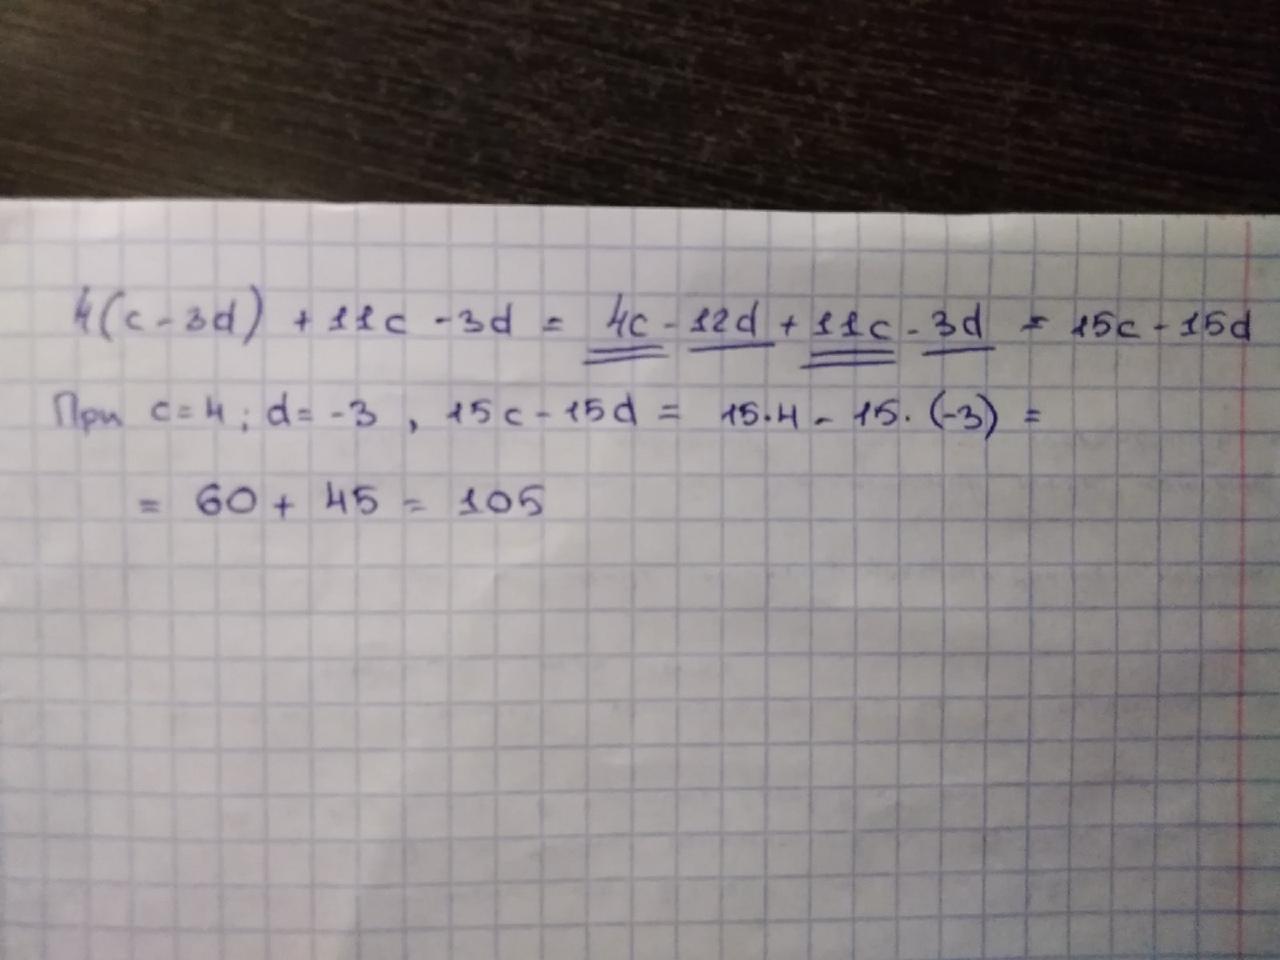 4(c-3d) + 11c - 3d = 4c - 12d + 11c - 3d = 15c - 15d
При c=4; d=-3, 15c - 15d = 15·4 - 15·(-3) =
= 60 + 45 = 105